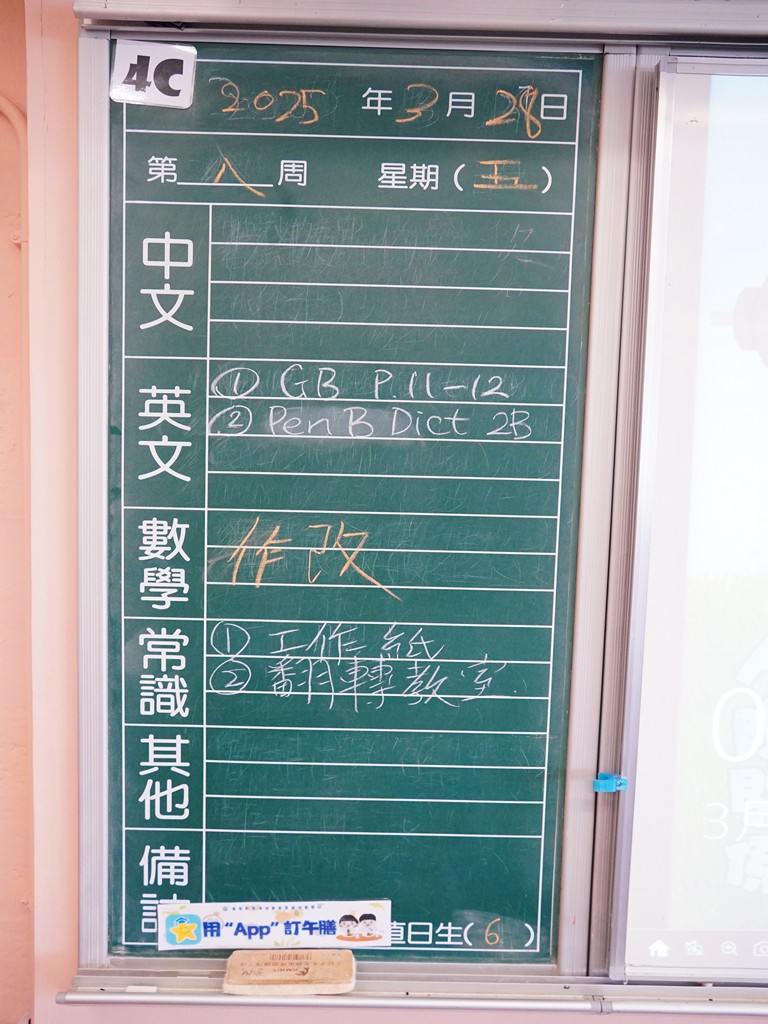 4C
2025 年 3 月 28 日
第 八 周 星期 ( 五 )
中文
英文
① GB P.11-12
② Pen B Dict 2B
數學
作改
常識
① 工作紙
② 翻轉教室
其他
備
用 "App" 訂午膳
直日生( 6 )
0
3月